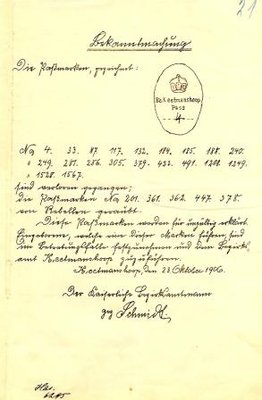 21
Bekanntmachung
Die Paßmarken, gezeichnet:
Keetmanshoop
Pass
4
No 4. 33. 87. 117. 132. 184. 185. 188. 240.
" 249. 281. 286. 305. 379. 433. 491. 1288. 1349.
" 1528. 1567.
sind verloren gegangen;
die Paßmarken No 201. 361. 362. 447. 378.
von Rebellen geraubt.
Diese Paßmarken werden für ungültig erklärt.
Eingeborene, welche eine dieser Marken führen, sind
im Betretungsfalle festzunehmen und dem Bezirks-
amt Keetmanshoop zuzuführen.
Keetmanshoop, den 23. Oktober 1906.
Der Kaiserliche Bezirksamtmann
gez Schmidt